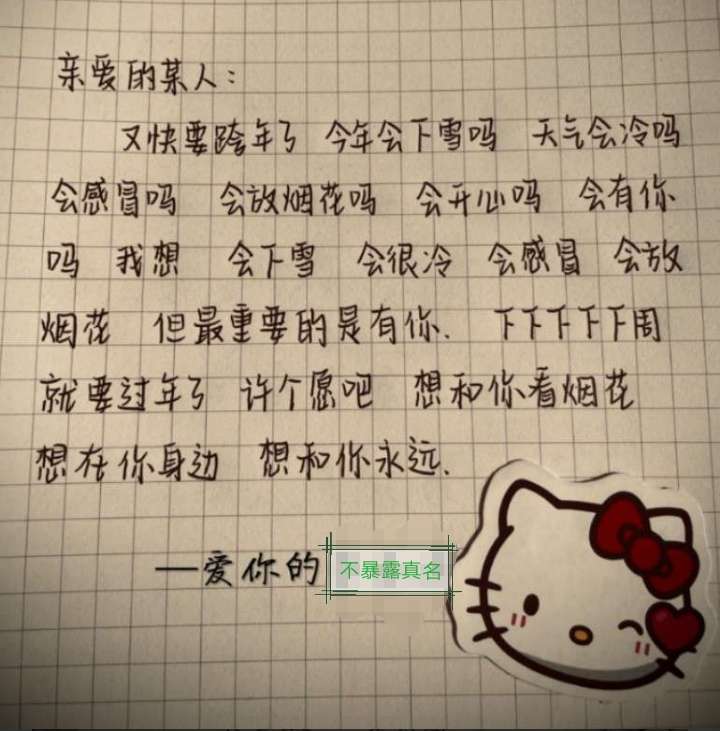 亲爱的某人:
又快要跨年了 今年会下雪吗 天气会冷吗
会感冒吗 会放烟花吗 会开心吗 会有你
吗 我想 会下雪 会很冷 会感冒 会放
烟花 但最重要的是有你. 下下下下下周
就要过年了 许个愿吧 想和你看烟花
想在你身边 想和你永远.
—爱你的 不暴露真名